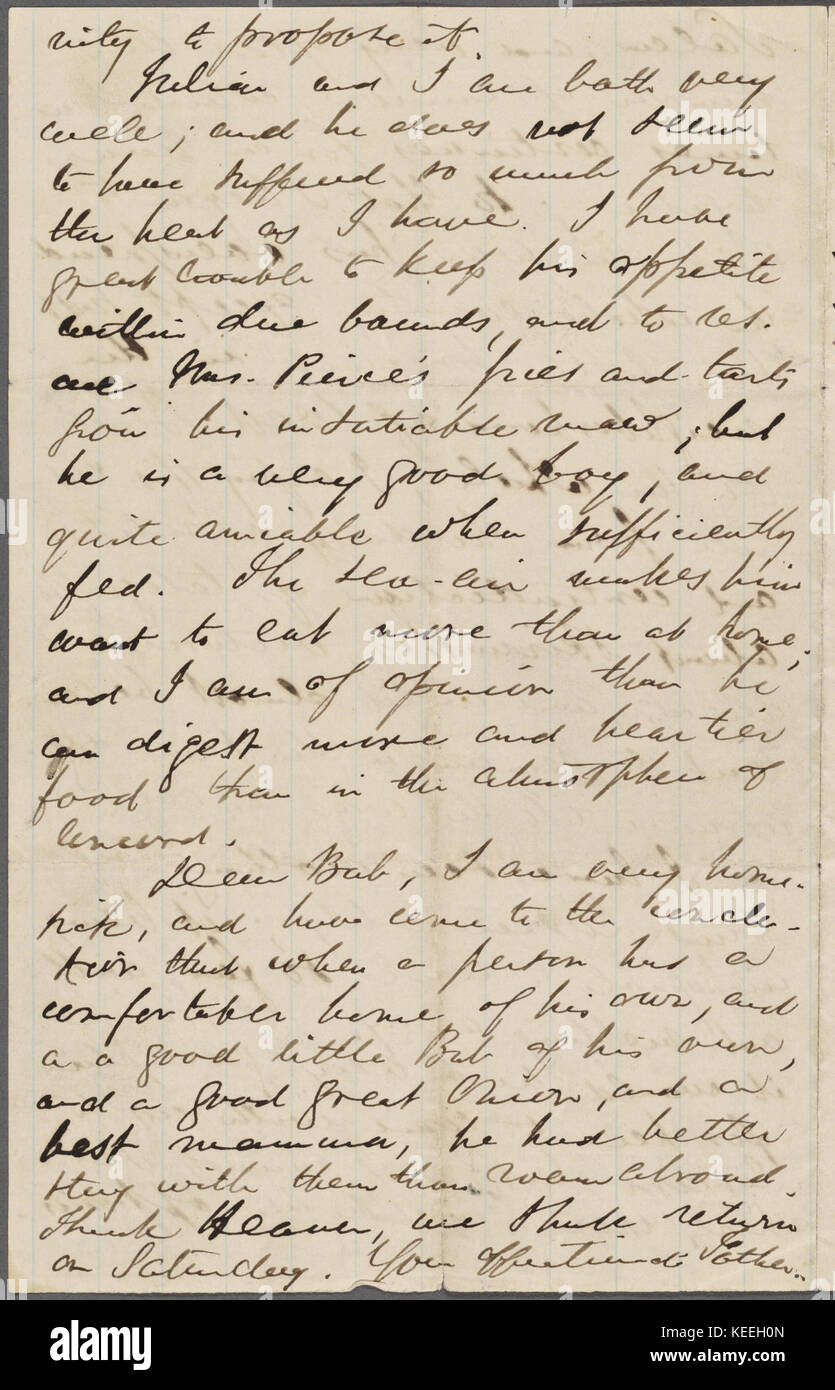 nity to propose it.
Julian and I are both very
well; and he does not seem
to have suffered so much from
the heat as I have. I have
great trouble to keep his appetite
within due bounds, and to res-
cue Mrs. Pierce's pies and tarts
from his insatiable maw; but
he is a very good boy, and
quite amiable when sufficiently
fed. The sea-air makes him
want to eat more than at home;
and I am of opinion that he
can digest more and heartier
food than in the atmosphere of
Concord.
Dear Bab, I am very home-
sick, and have come to the conclu-
sion that when a person has a
comfortable home of his own, and
a a good little Bab of his own,
and a good great Onion, and a
best mamma, he had better
stay with them than roam abroad.
Thank Heaven, we shall return
on Saturday. Your affectionate Father.
alamy
Image ID: KEEH0N
www.alamy.com